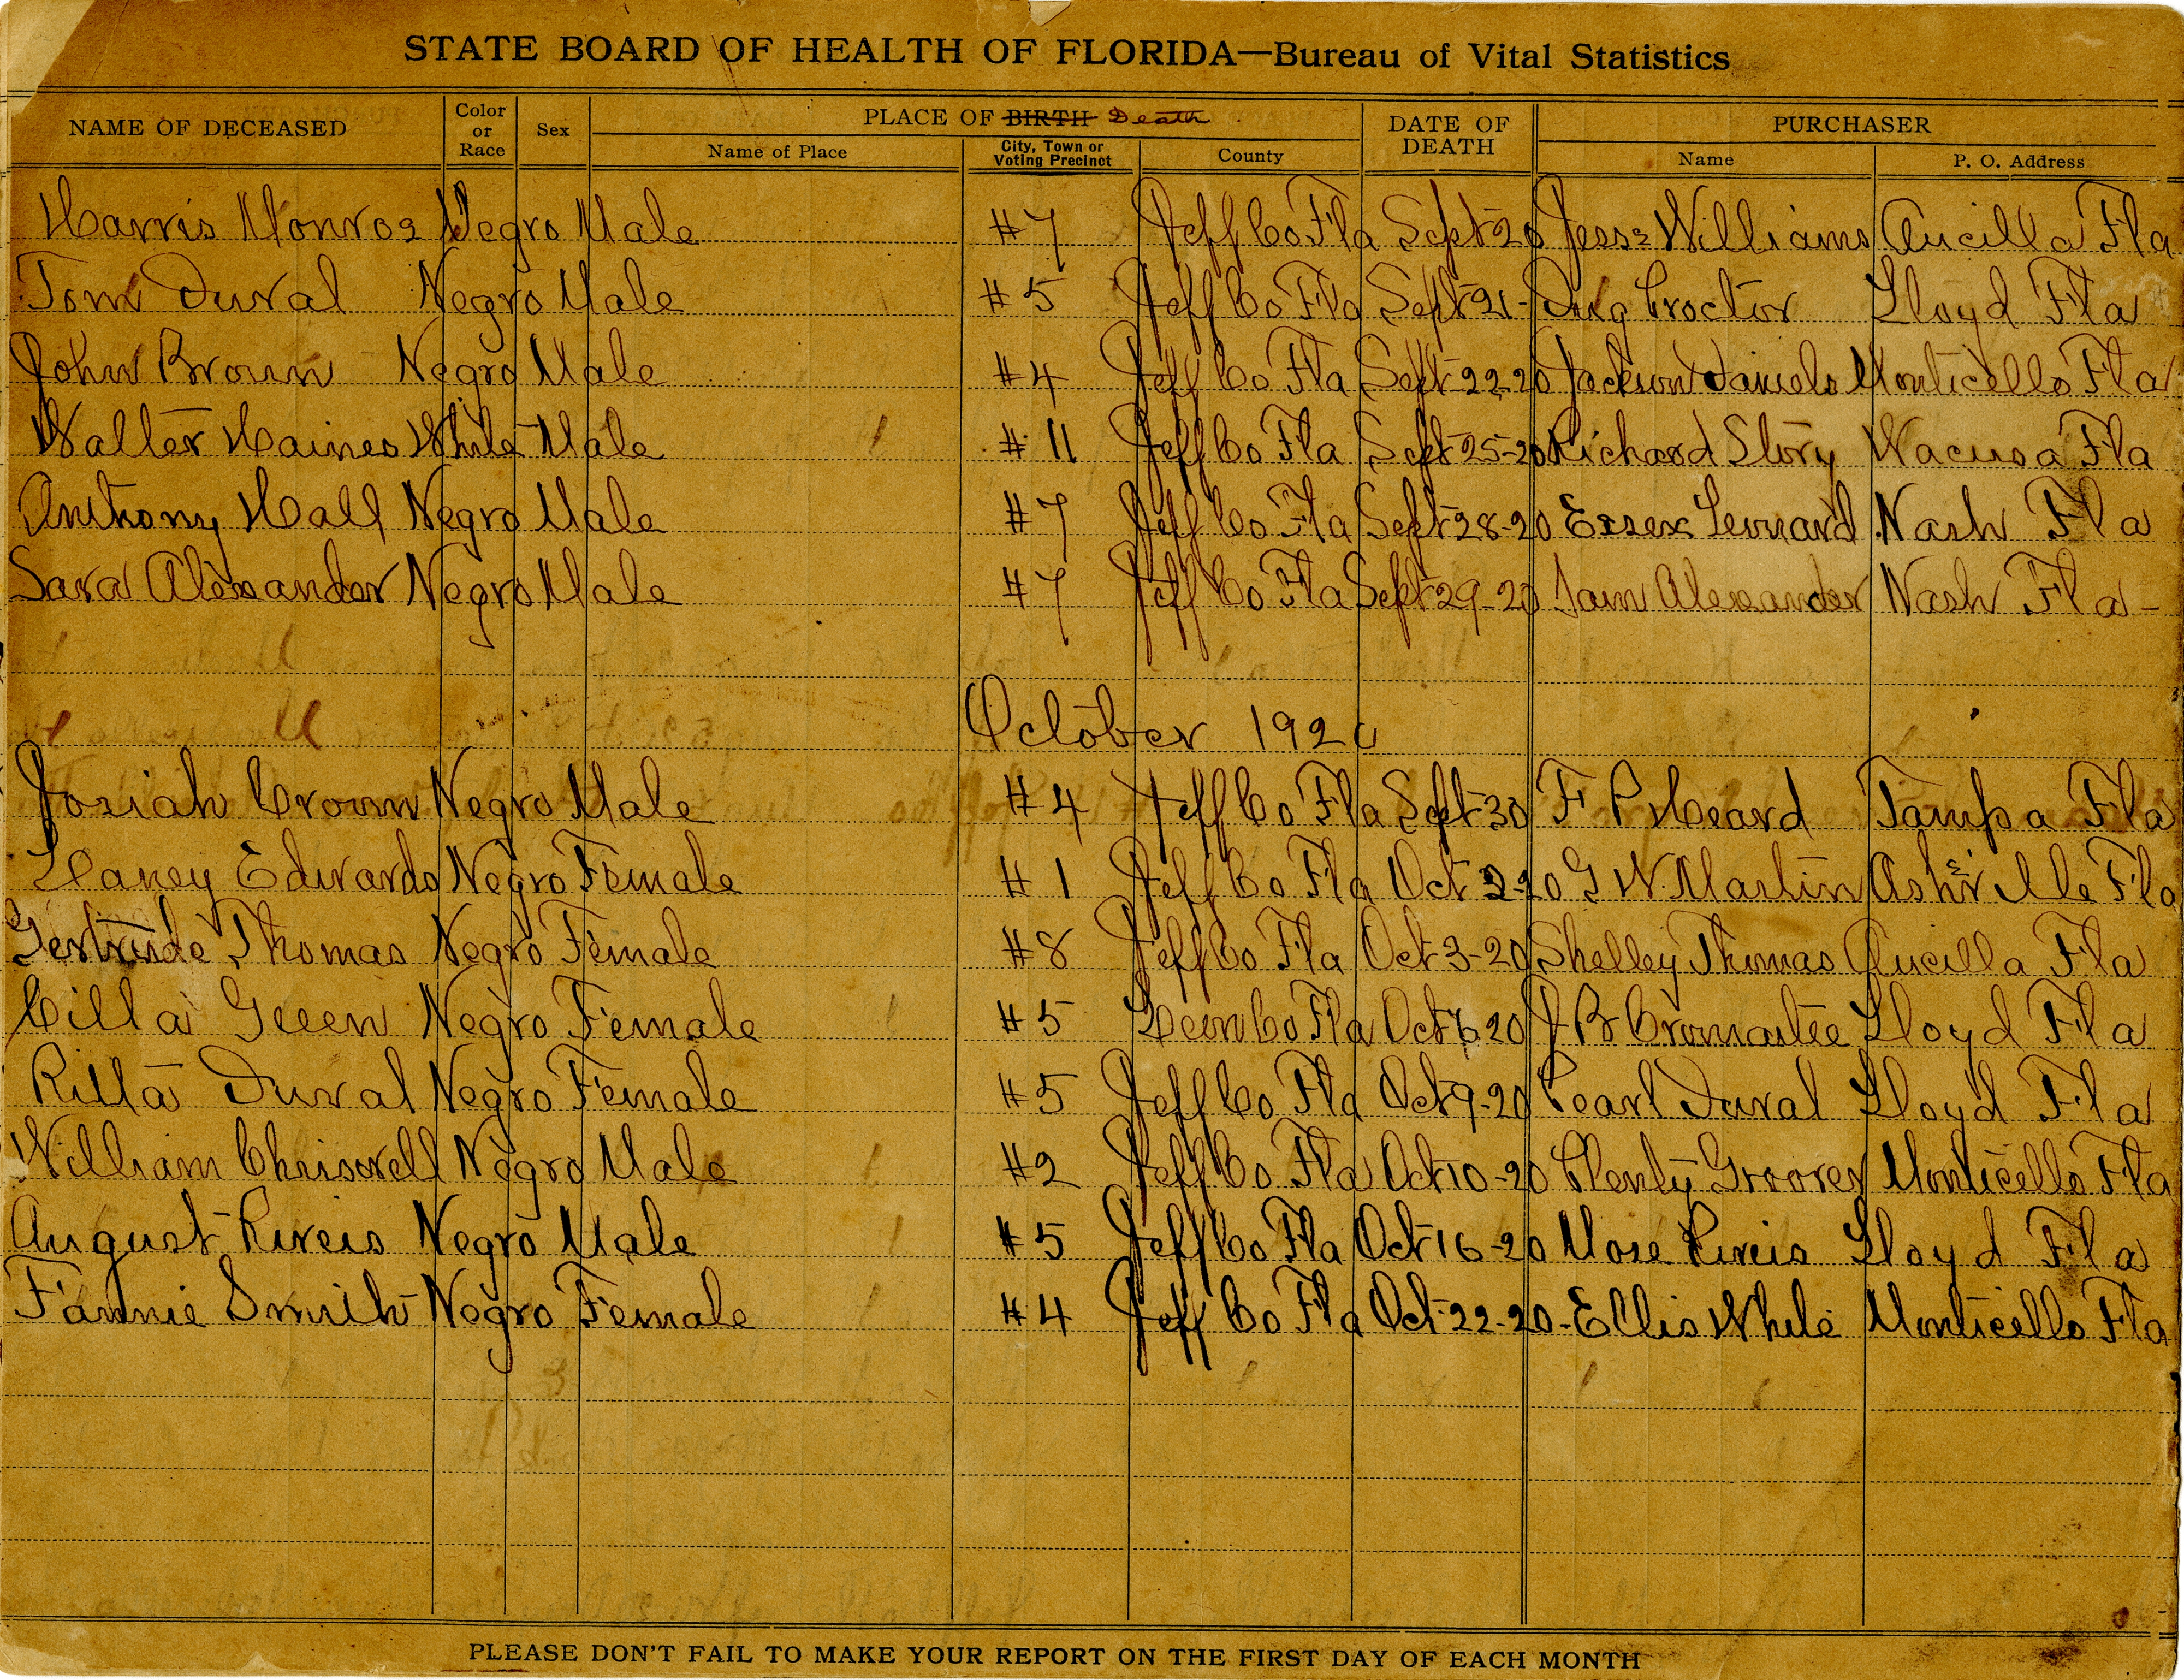 STATE BOARD OF HEALTH OF FLORIDA—Bureau of Vital Statistics
NAME OF DECEASED Color or Race Sex PLACE OF BIRTH Death DATE OF DEATH PURCHASER
Name of Place City, Town or Voting Precinct County Name P. O. Address
Harris Monroe Negro Male #7 Jeff Co Fla Sept 20 Jesse Williams Aucilla Fla
Tom Duval Negro Male #5 Jeff Co Fla Sept 21- Proctor Lloyd Fla
John Brown Negro Male #4 Jeff Co Fla Sept 22-20 Jackson Daniels Monticello Fla
Walter Haines White Male #11 Jeff Co Fla Sept 25-20 Richard Story Wacissa Fla
Anthony Hall Negro Male #7 Jeff Co Fla Sept 28-20 Essex Leonard Nash Fla
Sara Alexander Negro Male #7 Jeff Co Fla Sept 29-20 Sam Alexander Nash Fla-
October 1920
Josiah Crown Negro Male #4 Jeff Co Fla Sept 30 F P Heard Tampa Fla
Laney Edwards Negro Female #1 Jeff Co Fla Oct 2-20 G W. Martin Ashville Fla
Gertrude Thomas Negro Female #8 Jeff Co Fla Oct 3-20 Shelley Thomas Aucilla Fla
Cilla Green Negro Female #5 Leon Co Fla Oct 6 20 J B Cromartie Lloyd Fla
Rilla Duval Negro Female #5 Jeff Co Fla Oct 9-20 Pearl Duval Lloyd Fla
William Negro Male #2 Jeff Co Fla Oct 10-20 Plenty Groover Monticello Fla
August Negro Male #5 Jeff Co Fla Oct 16-20 Mose Lloyd Fla
Fannie Smith Negro Female #4 Jeff Co Fla Oct 22-20- Ellis White Monticello Fla
PLEASE DON'T FAIL TO MAKE YOUR REPORT ON THE FIRST DAY OF EACH MONTH